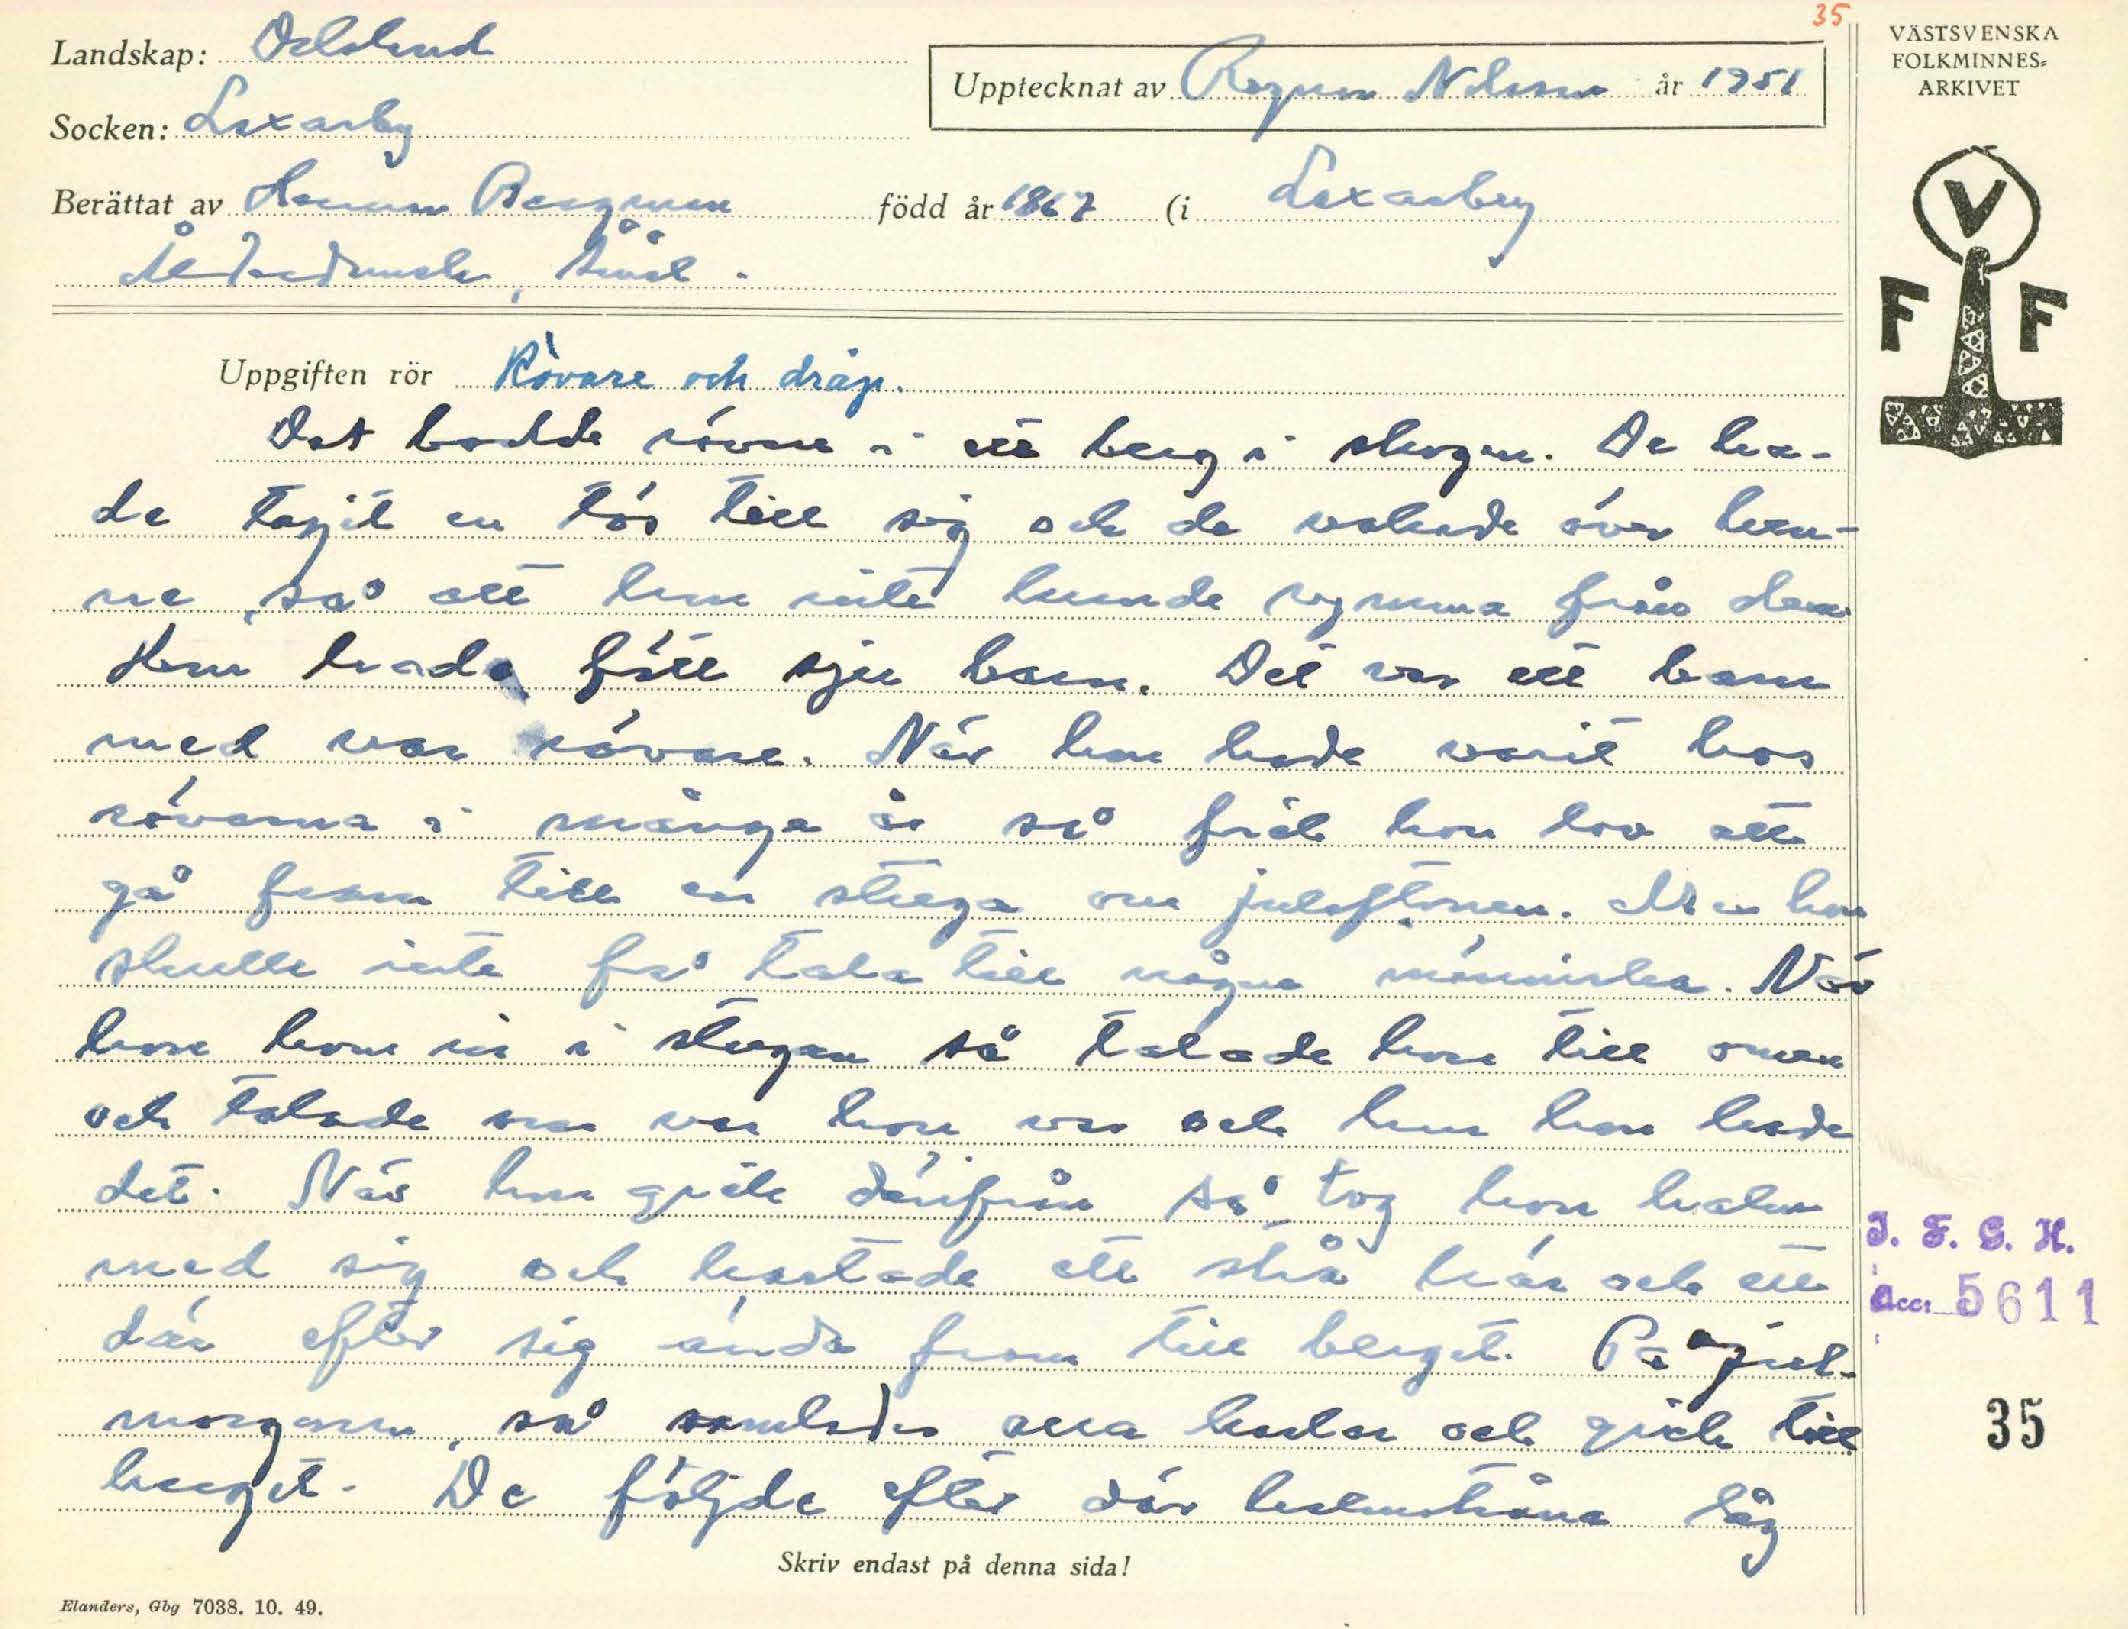 35
Landskap: Dalsland
Upptecknat av Ragnar Nilsson år 1951
VÄSTSVENSKA
FOLKMINNES-
ARKIVET
Socken: Laxarby
Berättat av Herman Bergman född år 1867 (i Laxarby
V
F F
Uppgiften rör Rövare och dråp.
Det bodde rövare i ett berg i skogen. De ha-
de tagit en tös till sig och de vaktade över hen-
ne, så att hon inte kunde rymma från dem
Hon hade fött sju barn. Det var ett barn
med var rövare. När hon hade varit hos
rövarna i många år så fick hon lov att
gå fram till en stuga om julaftonen. Men hon
skulle inte få tala till någon människa. När
hon kom in i stugan så talade hon till
och talade om var hon var och hur hon hade
det. När hon gick därifrån så tog hon halm
med sig och kastade ett strå här och ett
där efter sig ända fram till berget. På jul-
morgonen, så samlades alla karlar och gick till
berget. De följde efter där halmstråna låg
J. F. G. H.
Acc. 5611
35
Skriv endast på denna sida!
Elanders, Gbg 7038. 10. 49.